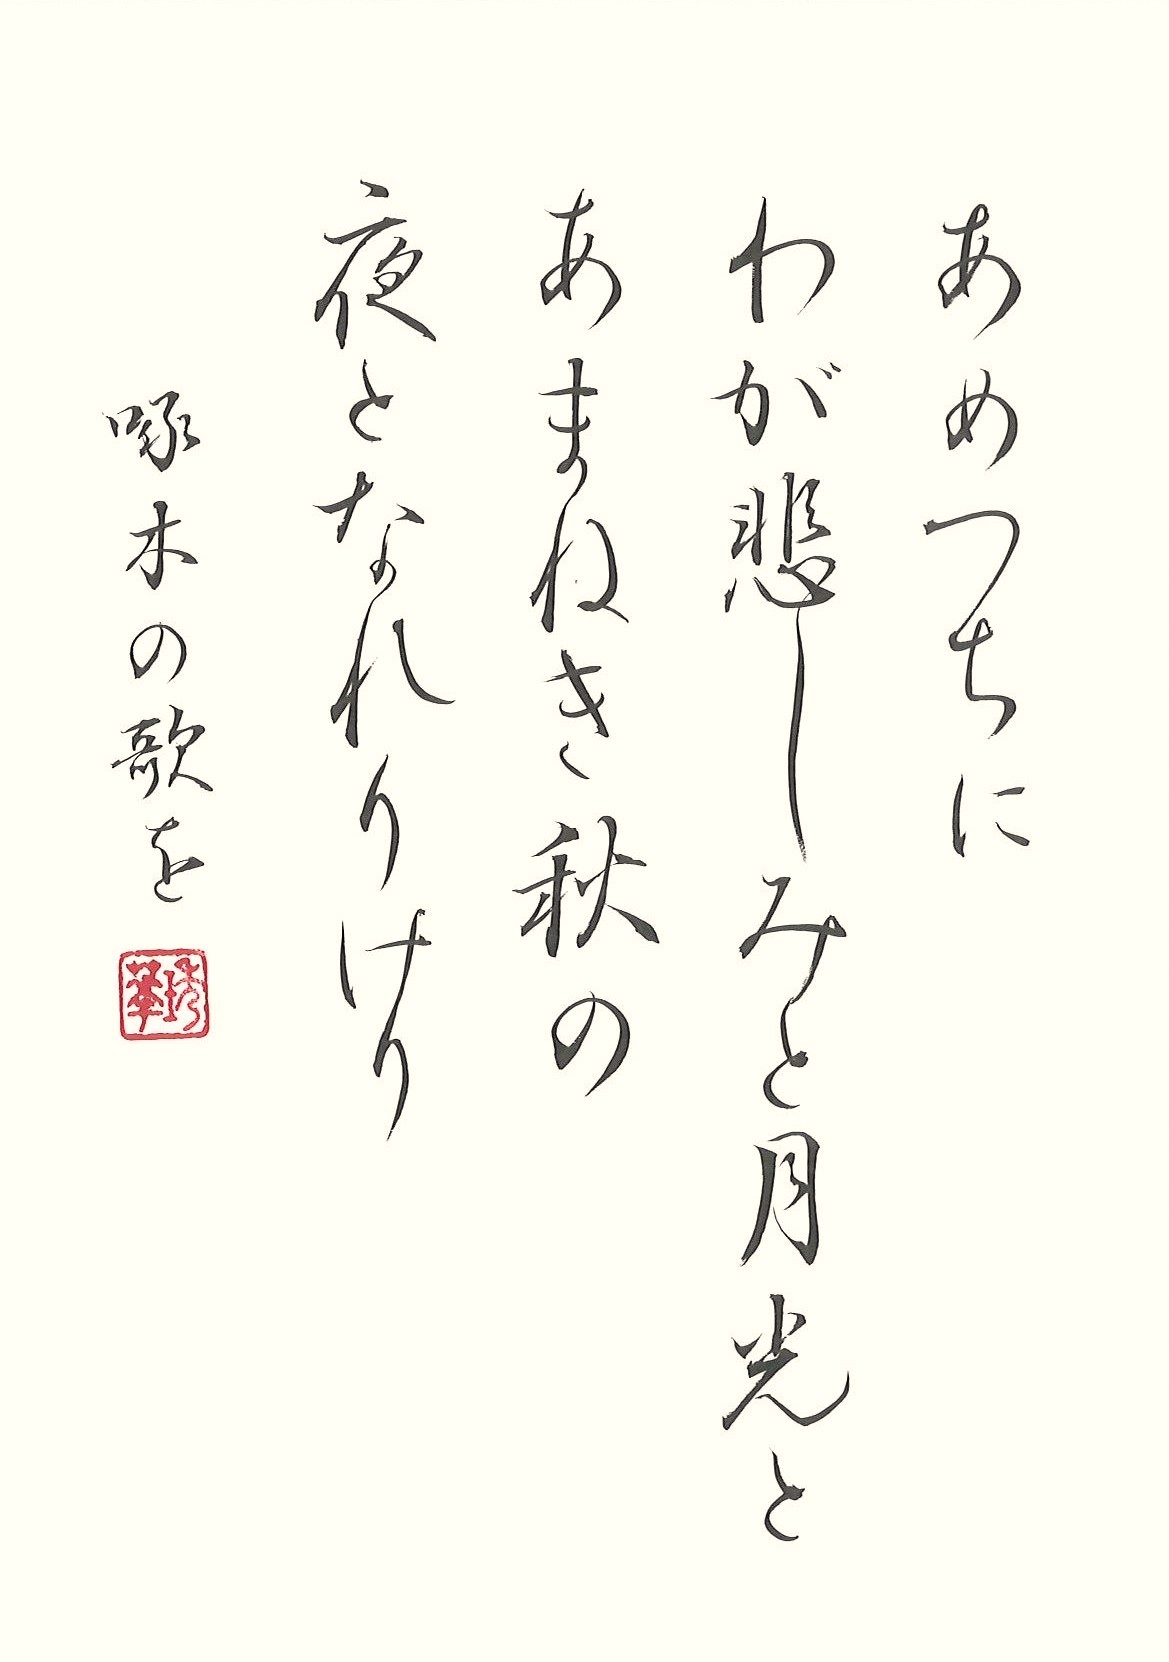 あめつちに
わが悲しみと月光と
あまねき秋の
夜となれりけり
啄木の歌を
琇華